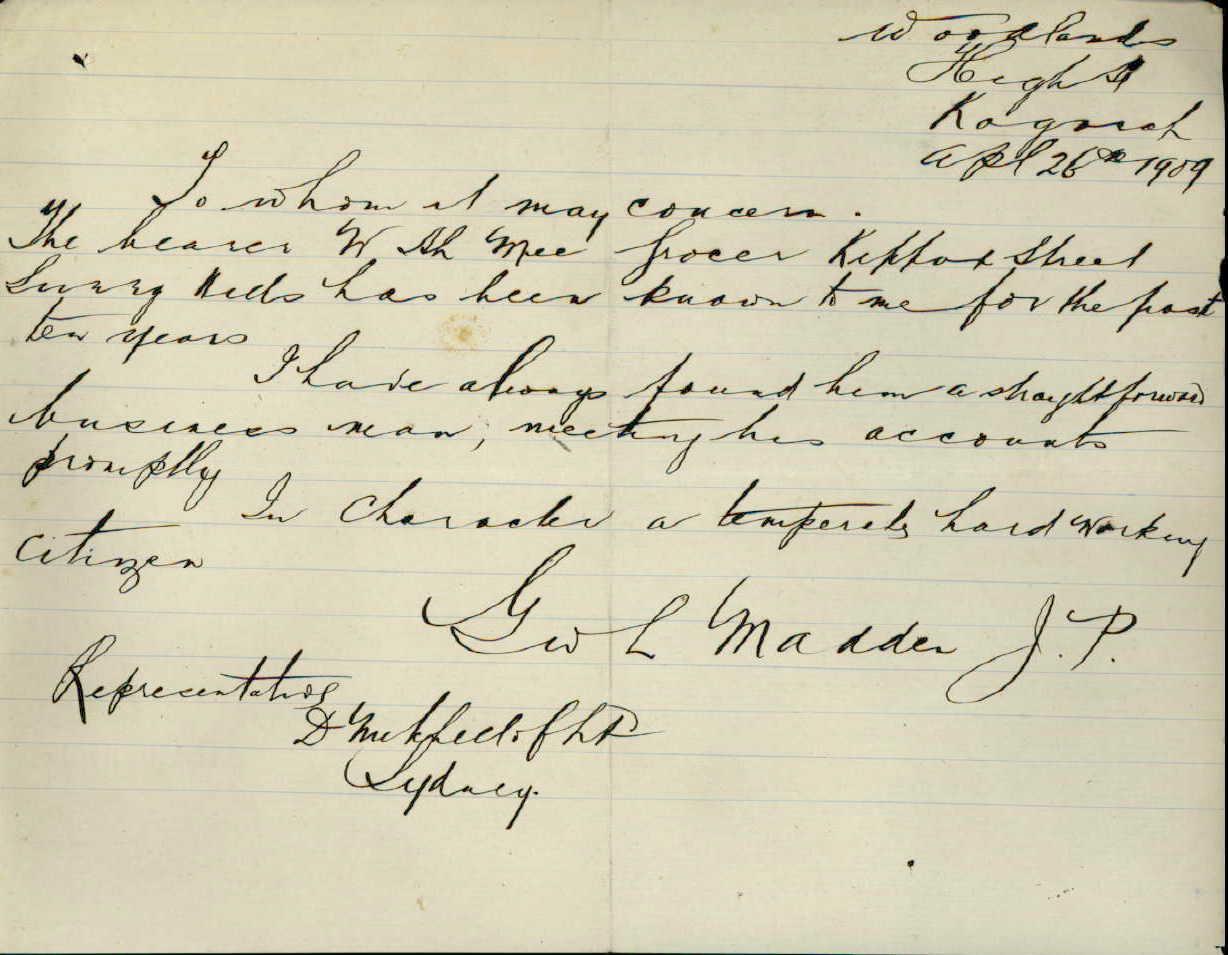 Woodlands
High St
Kogarah
Apl 26th 1909
To whom it may concern.
The bearer W Ah Mee Grocer Kippax Street
Surry Hills has been known to me for the past
ten years
I have always found him a straightforward
business man, meeting his accounts
promptly
In character a temperate hard working
citizen
Geo L Madden J.P.
Representative
D Ltd
Sydney.